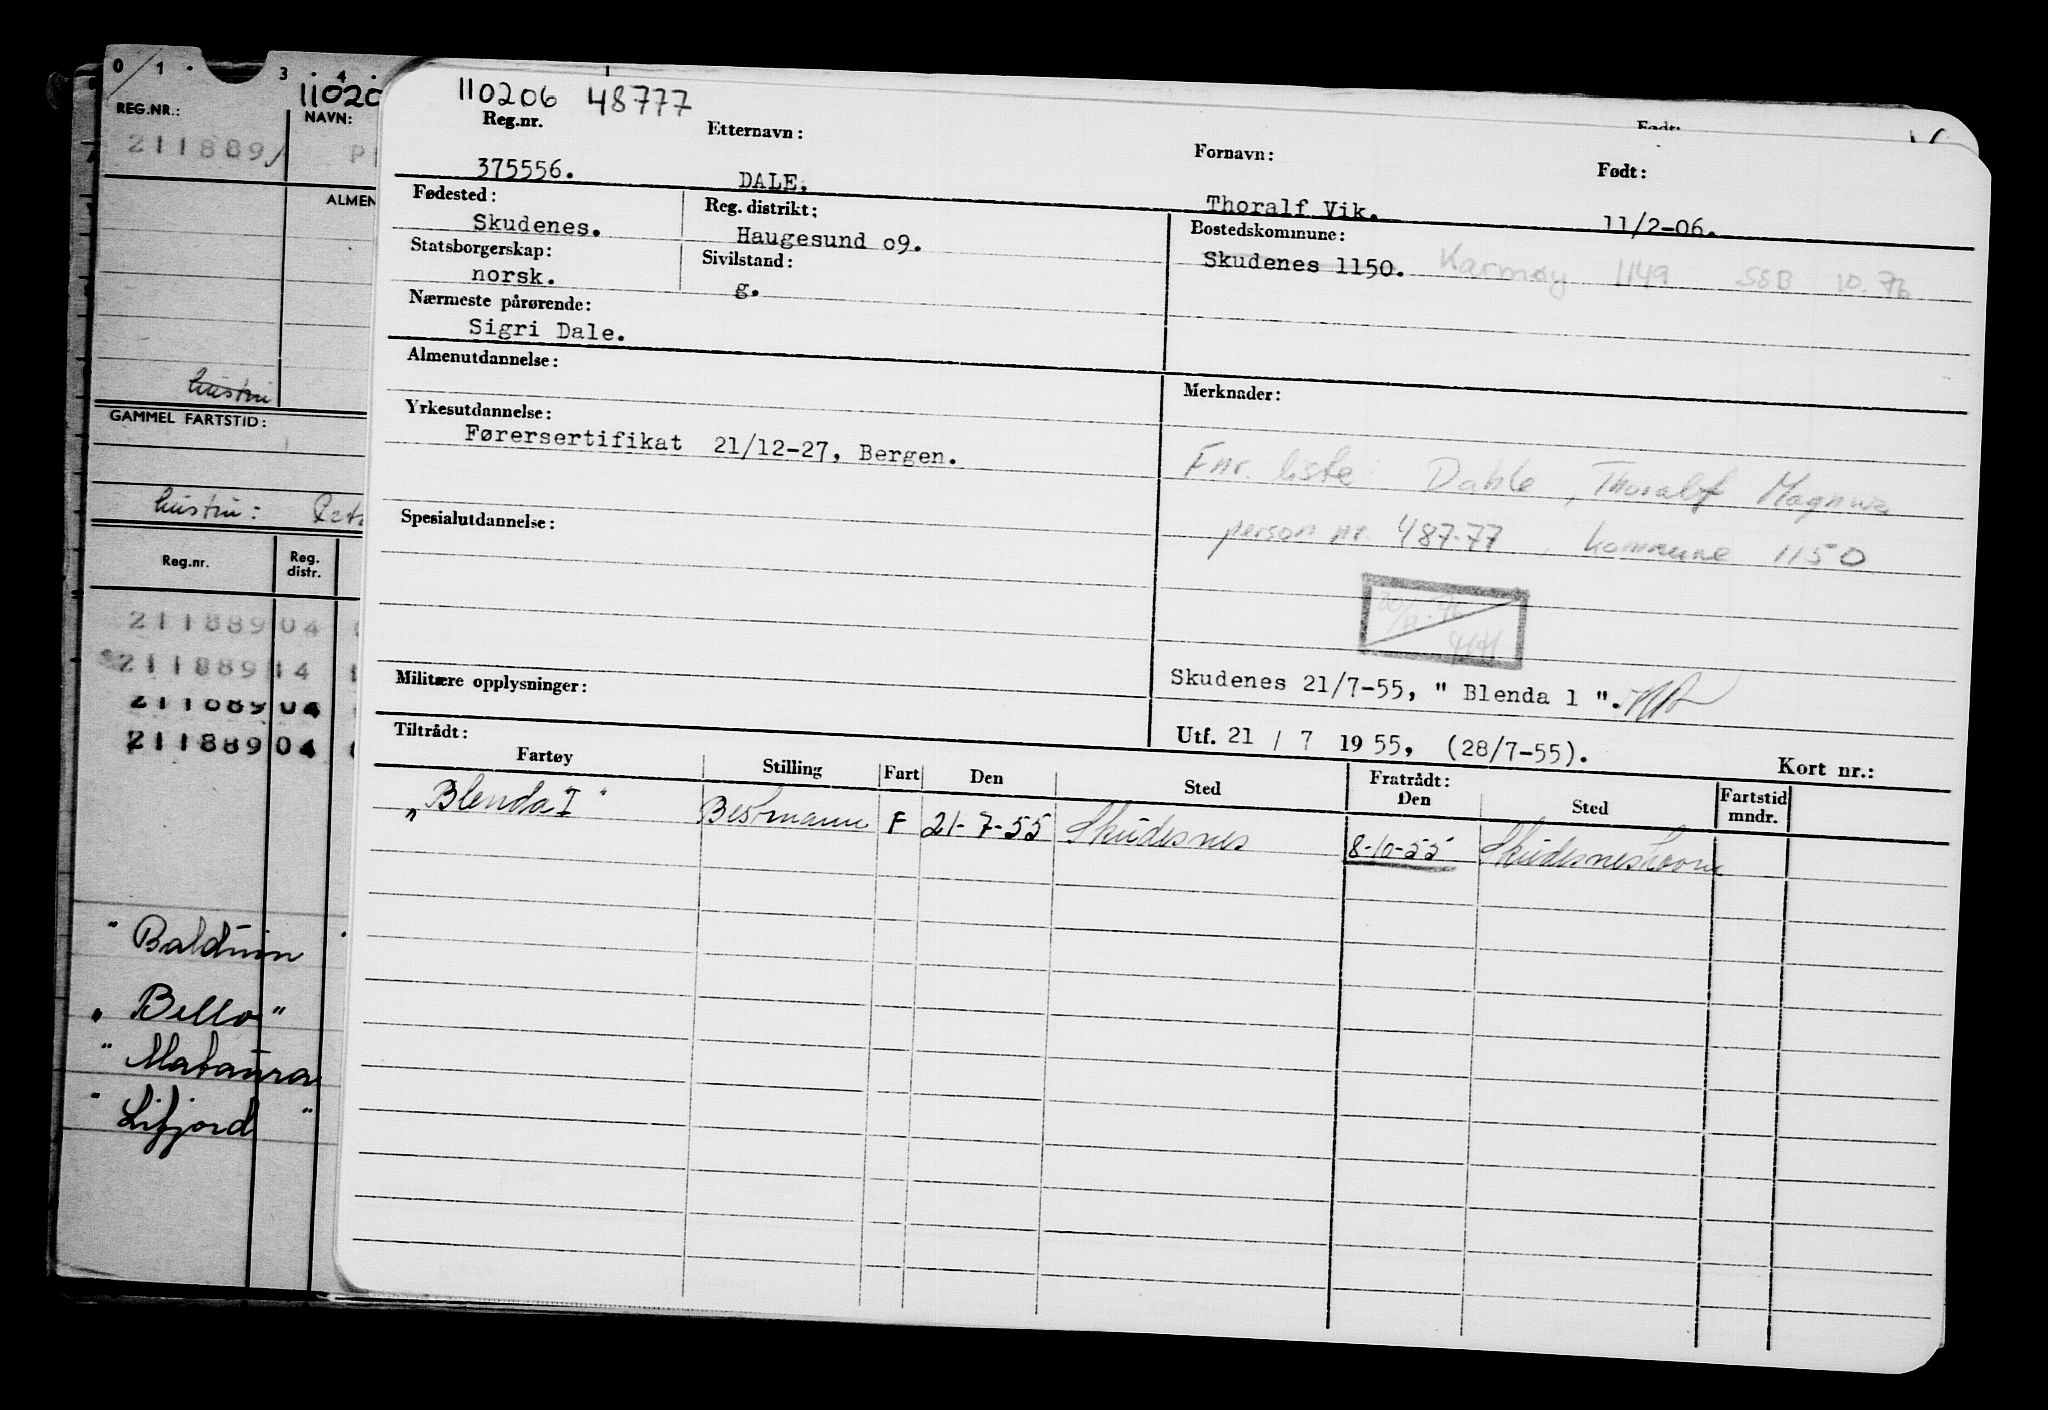 0 1 . 3 . 4 .
REG.NR.: NAVN: 11020
211889
ALMEN
hustru
GAMMEL FARTSTID:
hustru:
Reg.nr. Reg. distr.
211889 04
211889 14
211889 04
211889 04
" Balduin
" Bello "
" Mataura
" Lifjord "
110206 48777
Reg.nr. Etternavn: Fornavn: Født:
Født:
375556. DALE. Thoralf Vik. 11/2-06.
Fødested: Reg. distrikt: Bostedskommune:
Skudenes. Haugesund o9. Skudenes 1150. Karmøy 1149 SSB 10.76
Statsborgerskap: Sivilstand:
norsk. g.
Nærmeste pårørende:
Sigri Dale.
Almenutdannelse: Merknader:
Yrkesutdannelse:
Førersertifikat 21/12-27, Bergen.
Fnr. liste: Dahle, Thoralf Magnus
person nr. 487.77, kommune 1150
Spesialutdannelse:
Militære opplysninger:
Skudenes 21/7-55, " Blenda 1 ".
Utf. 21 / 7 1955, (28/7-55). Kort nr.:
Tiltrådt: Fratrådt:
Fartøy Stilling Fart Den Sted Den Sted Fartstid mndr.
"Blenda I" Bestmann F 21-7-55 Skudesnes 8-10-55 Skudesneshavn